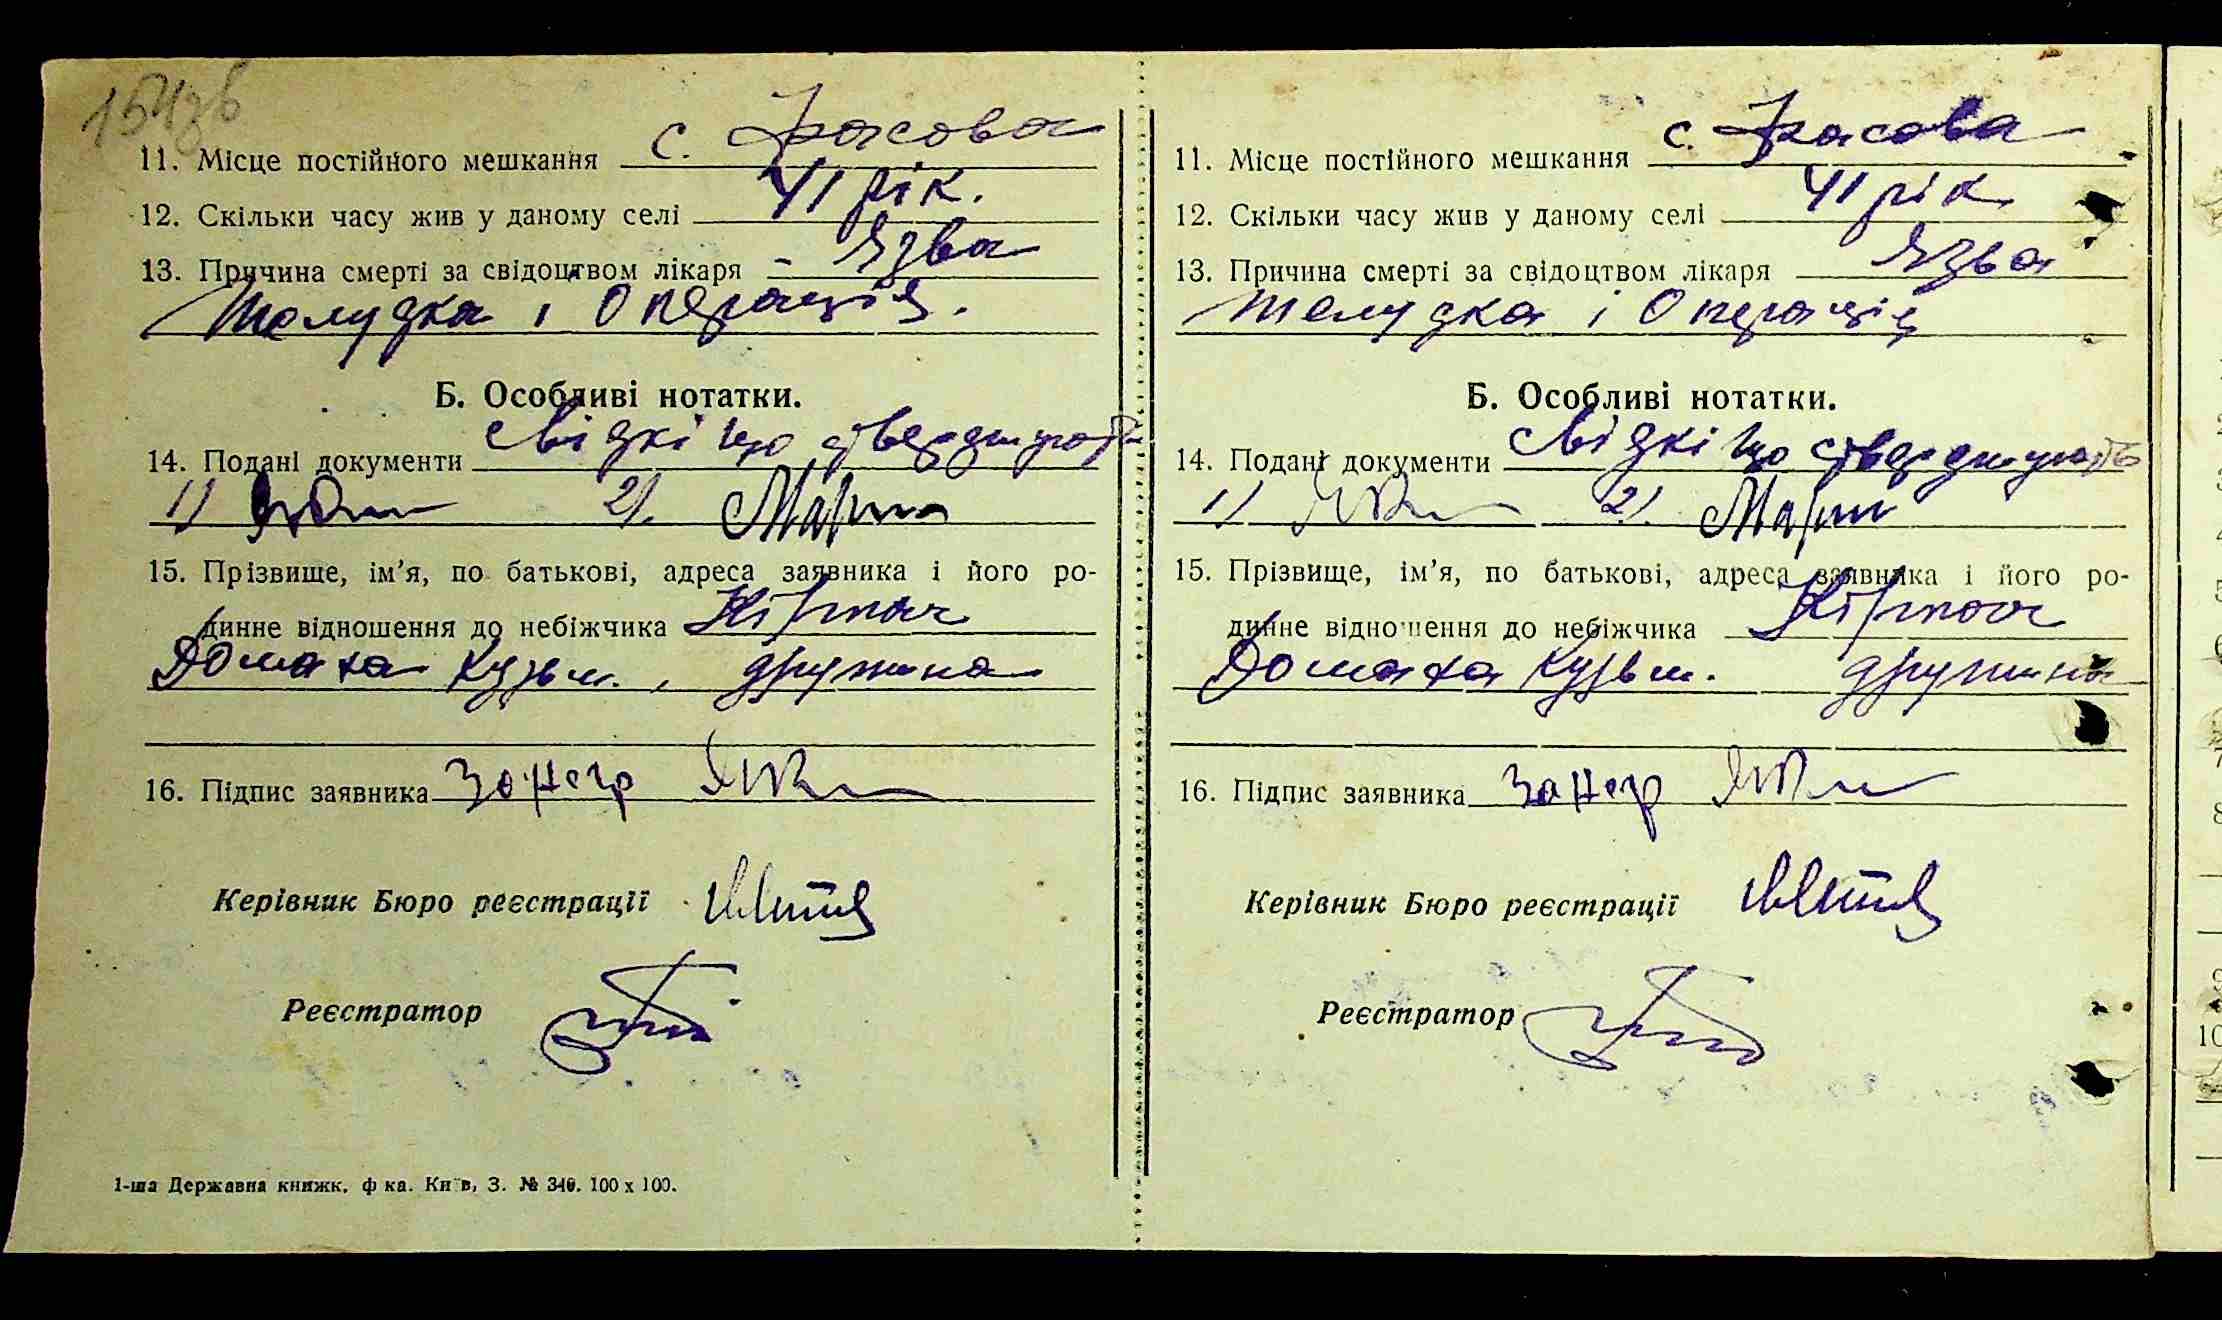 154зв
11. Місце постійного мешкання с.
12. Скільки часу жив у даному селі 41 рік.
13. Причина смерті за свідоцтвом лікаря - Язва
желудка і операція.
Б. Особливі нотатки.
14. Подані документи свідкі що стверджують
1) 2).
15. Прізвище, ім'я, по батькові, адреса заявника і його ро-
динне відношення до небіжчика Кірпач
Домаха Кузьм., дружина
16. Підпис заявника за неգր
Керівник Бюро реєстрації
Реєстратор
1-ша Державна книжк. ф ка. Київ, З. № 340. 100 x 100.
11. Місце постійного мешкання с.
12. Скільки часу жив у даному селі 41 рік
13. Причина смерті за свідоцтвом лікаря Язва
желудка і операція
Б. Особливі нотатки.
14. Подані документи свідкі що стверджують
1) 2).
15. Прізвище, ім'я, по батькові, адреса заявника і його ро-
динне відношення до небіжчика Кірпач
Домаха Кузьм. дружина
16. Підпис заявника
Керівник Бюро реєстрації
Реєстратор
10